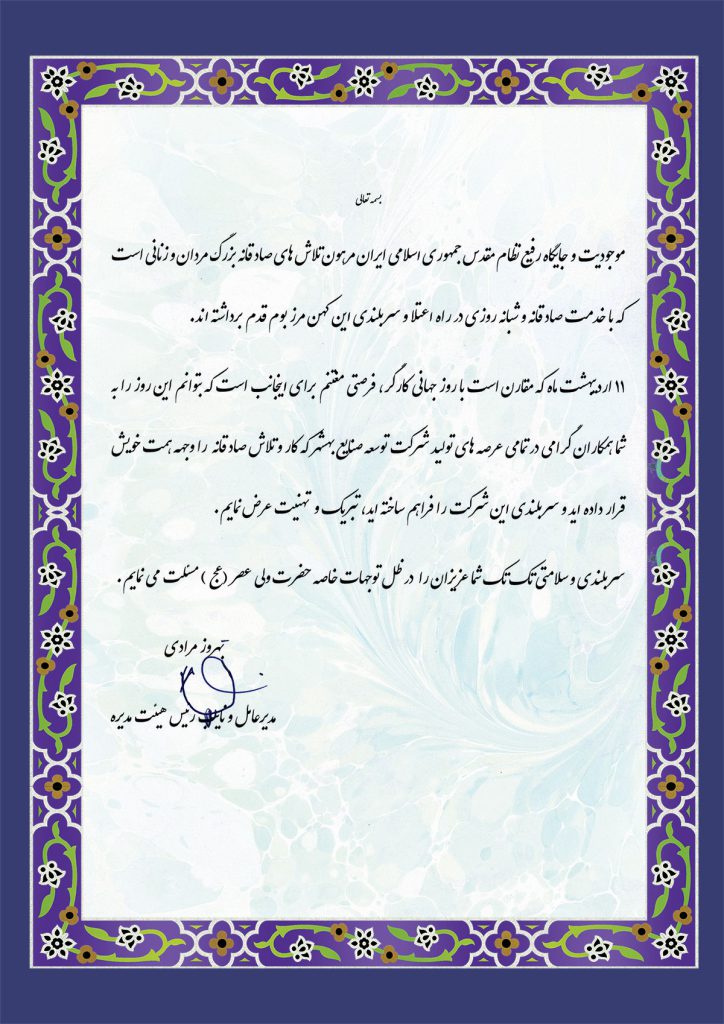 بسمه تعالی
موجودیت و جایگاه رفیع نظام مقدس جمهوری اسلامی ایران مرهون تلاش های صادقانه بزرگ مردان و زنانی است
که با خدمت صادقانه و شبانه روزی در راه اعتلا و سربلندی این کهن مرز بوم قدم برداشته اند.
۱۱ اردیبهشت ماه که مقارن است با روز جهانی کارگر، فرصتی مغتنم برای اینجانب است که بتوانم این روز را به
شما همکاران گرامی در تمامی عرصه های تولید شرکت توسعه صنایع بهشهر که کار و تلاش صادقانه را وجهه همت خویش
قرار داده اید و سربلندی این شرکت را فراهم ساخته اید، تبریک و تهنیت عرض نمایم.
سربلندی و سلامتی تک تک شما عزیزان را در ظل توجهات خاصه حضرت ولی عصر (عج) مسئلت می نمایم.
بهروز مرادی
مدیرعامل و نایب رئیس هیئت مدیره